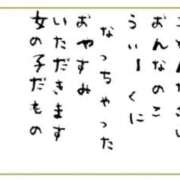 おんなのこ
うぃーくに
なっちゃった
おやすみ
いただきます
女の子だもの